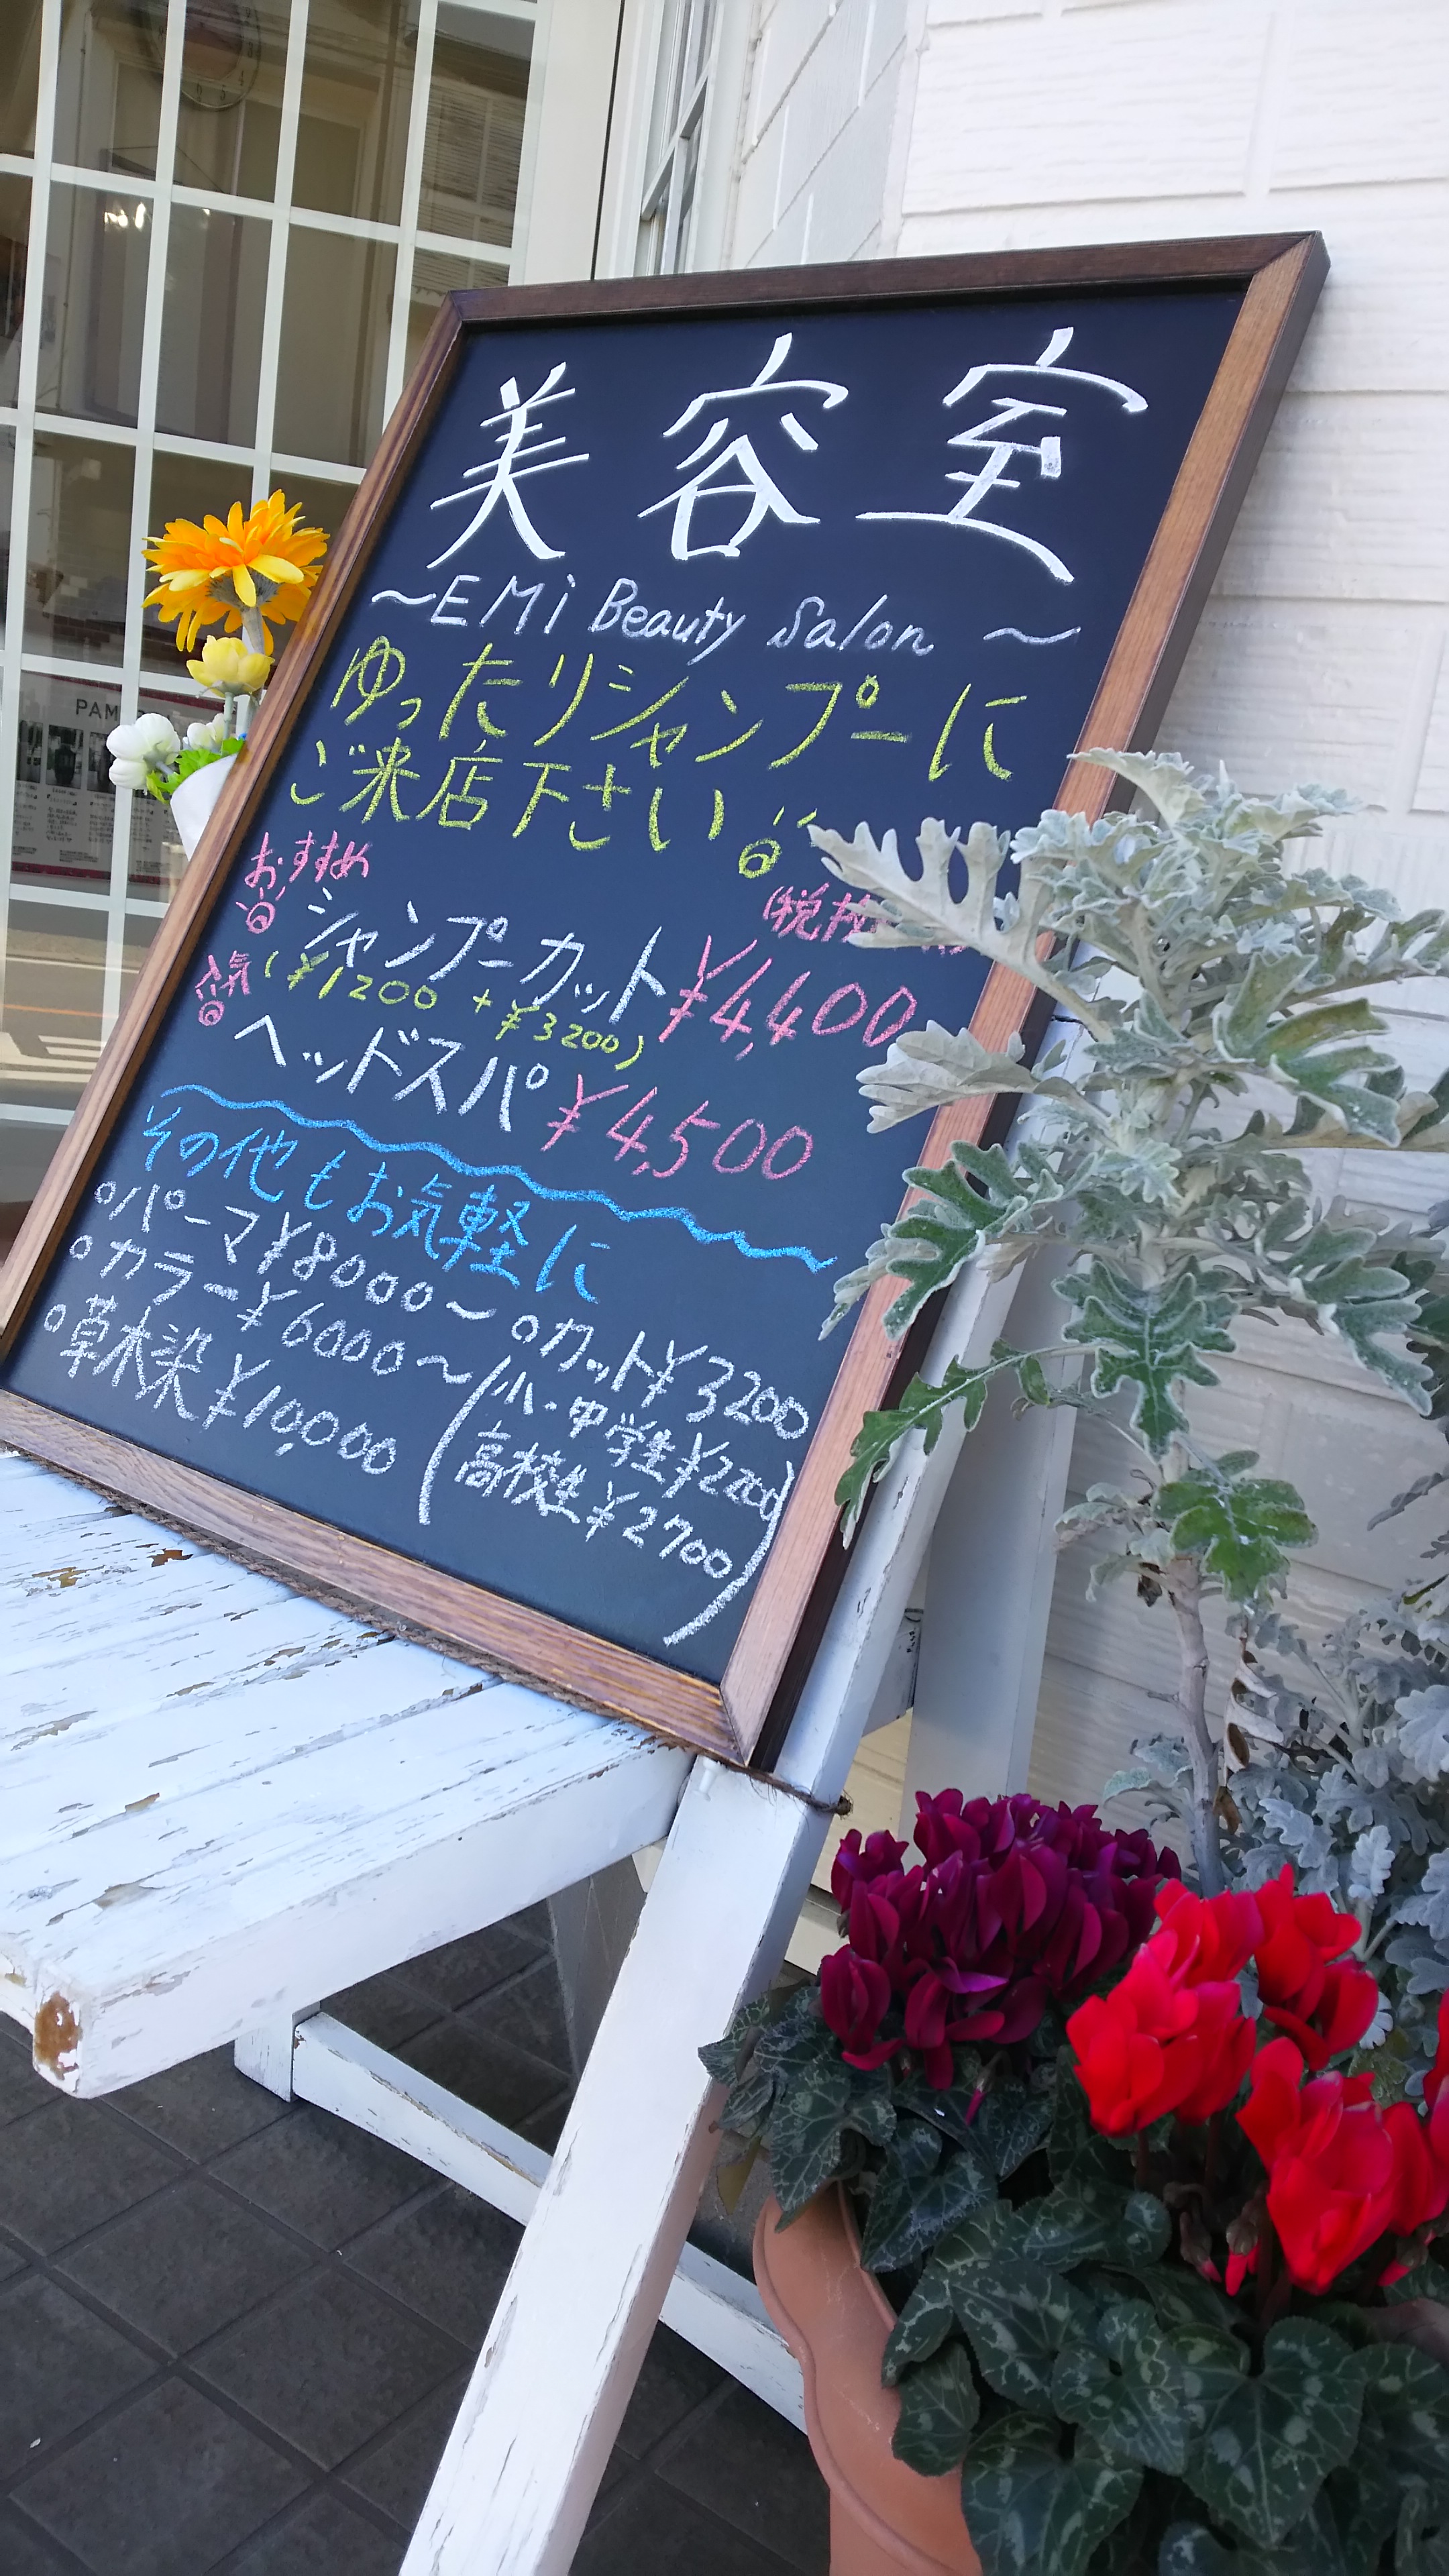 美容室
~EMi Beauty Salon~
ゆったりシャンプーに
ご来店下さい
おすすめ
(税抜
シャンプーカット ¥4,400
(¥1200 + ¥3200)
人気
ヘッドスパ ¥4,500
その他もお気軽に
○パーマ¥8000~ ○カット¥3200
○カラー¥6000~ (小・中学生¥2200
○草木染¥10,000 高校生¥2700)
PAM